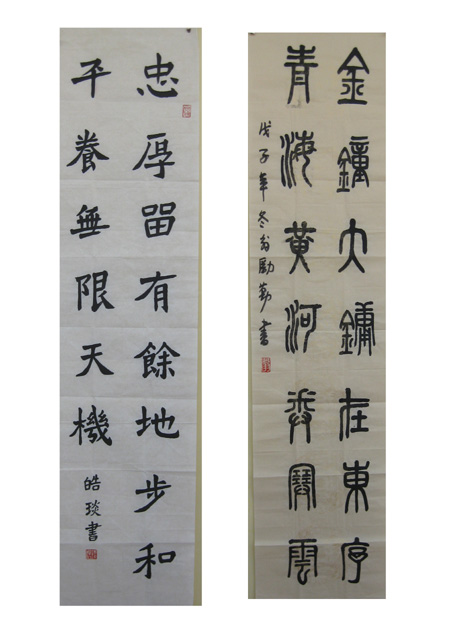 金鐘大鏞在東序
青海黃河卷塞雲
戊子年冬翁勵勤書
忠厚留有餘地步和
平養無限天機
皓琰書